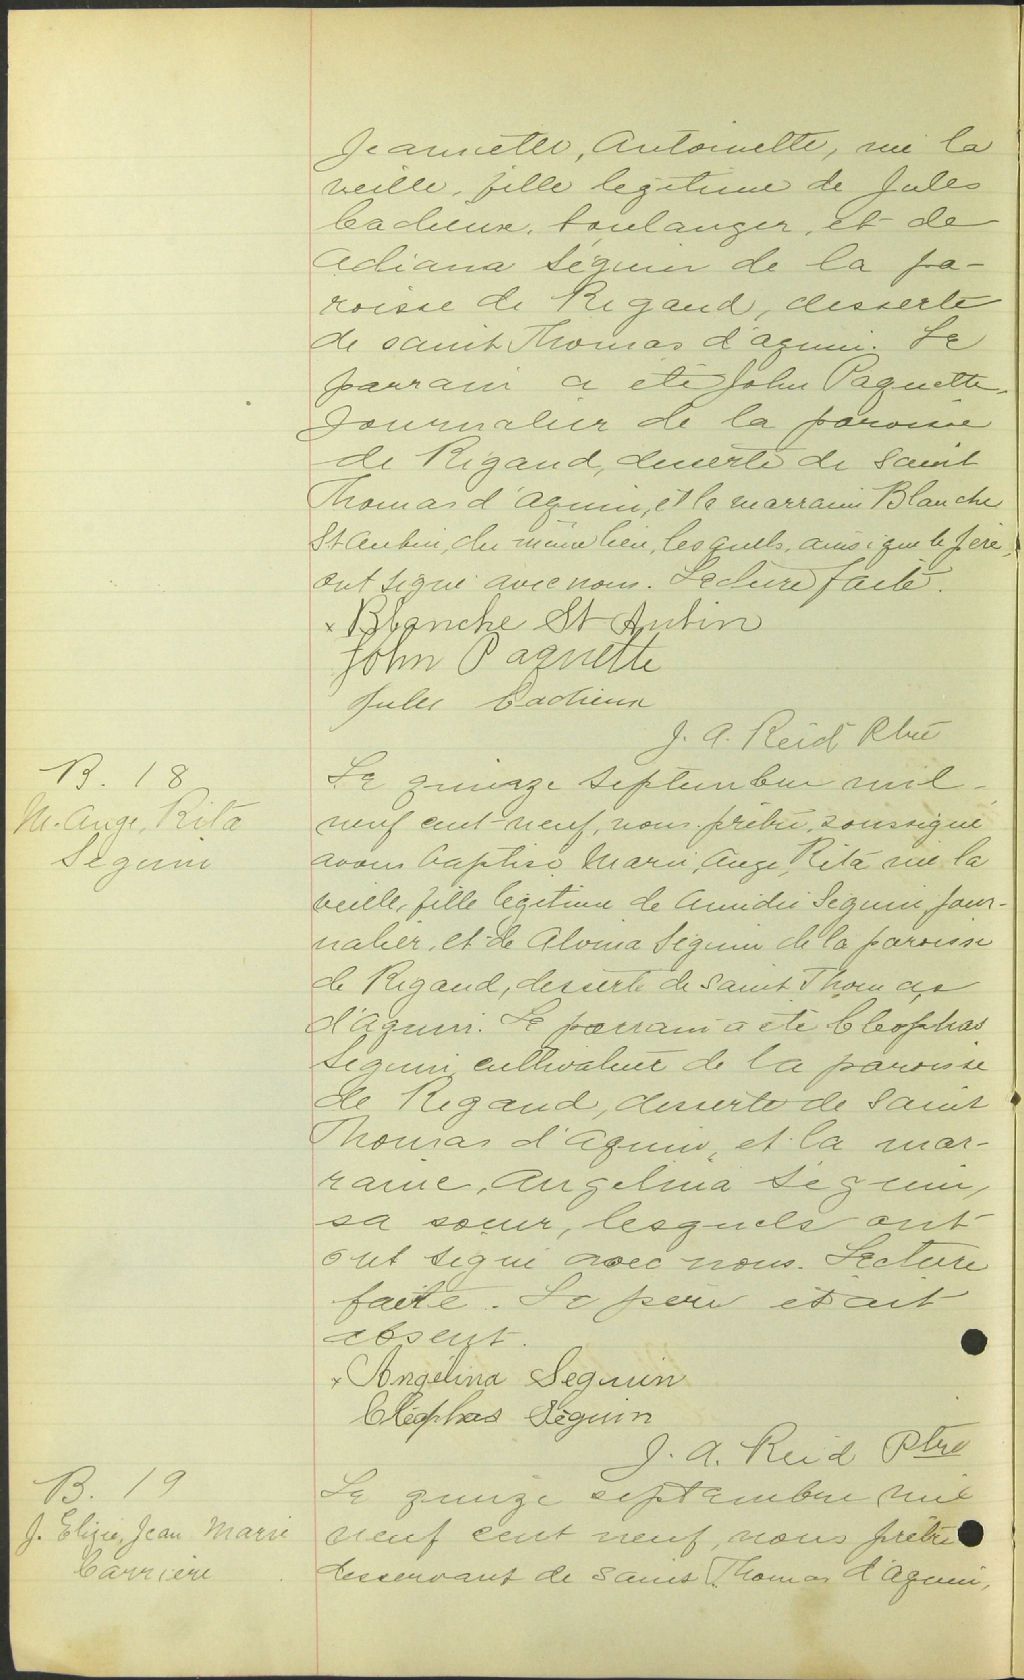 Jeannette, Antoinette, née la
veille, fille légitime de Jules
Cadieux, boulanger, et de
Adiana Séguin de la pa-
roisse de Rigaud, desserte
de saint Thomas d'aquin. Le
parrain a été John Paquette,
Journalier de la paroisse
de Rigaud, desserte de Saint
Thomas d'aquin, et la marraine Blanche
St Aubin, du même lieu, lesquels, ainsi que le père,
ont signé avec nous. Lecture faite.
x Blanche St Aubin
John Paquette
Jules Cadieux
J. A. Reid Ptre
B. 18
M. Ange, Rita
Séguin
Le quinze septembre mil-
neuf cent-neuf, nous prêtre, soussigné
avons baptisé Marie, Ange, Rita née la
veille, fille légitime de Amédée Séguin jour-
nalier, et de Alvina Séguin de la paroisse
de Rigaud, desserte de saint Thomas
d'aquin. Le parrain a été Cléophas
Séguin cultivateur de la paroisse
de Rigaud, desserte de Saint
Thomas d'Aquin, et la mar-
raine, Angelina Séguin,
sa soeur, lesquels ont
ont signé avec nous. Lecture
faite. Le père était
absent.
x Angélina Seguin
Cléophas Séguin
J. A. Reid Ptre
B. 19
J. Elzie, Jean Marie
Carrière
Le quinze septembre mil
neuf cent neuf, nous prêtre
desservant de saint Thomas d'Aquin,